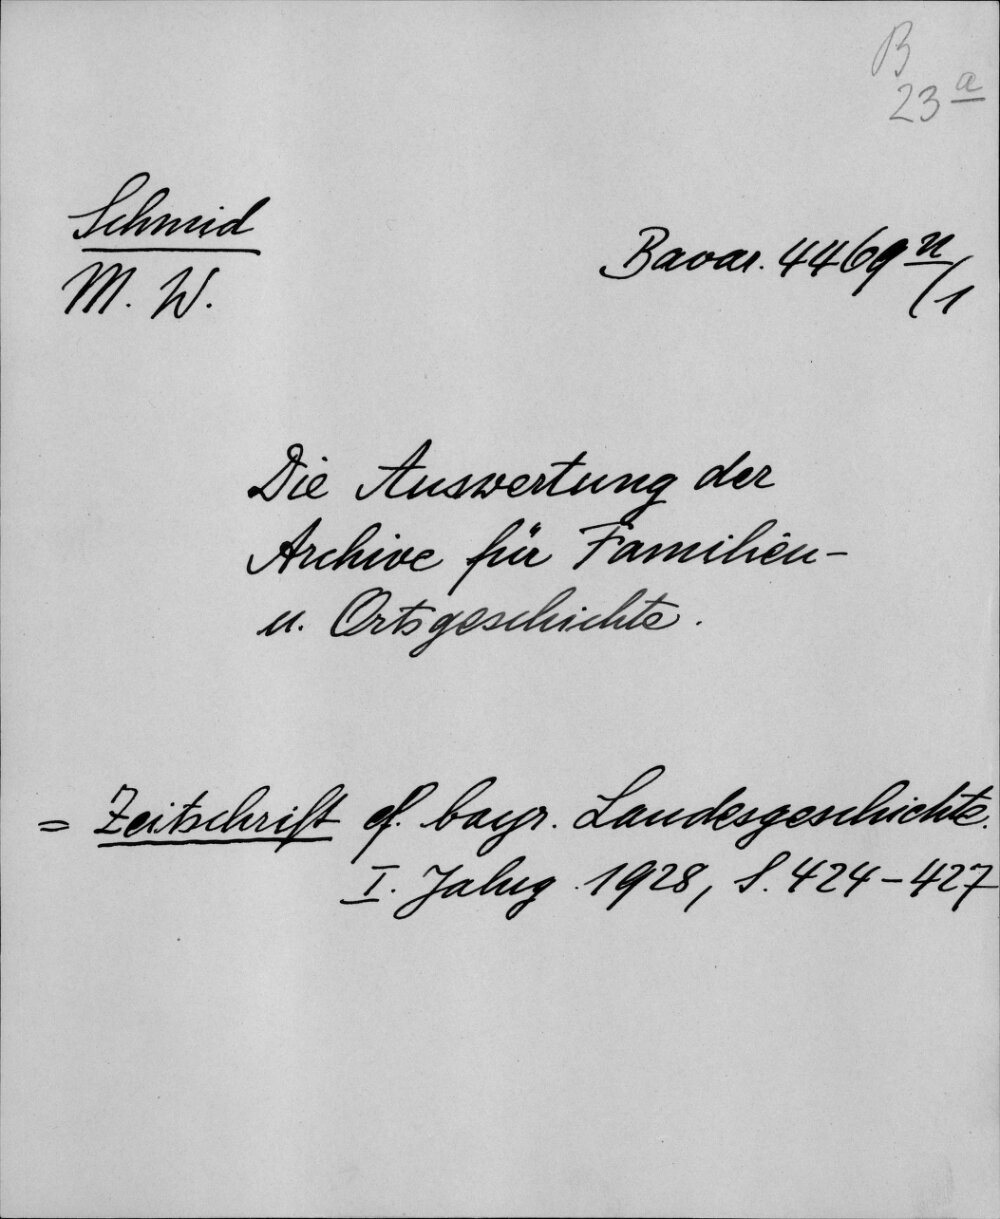 B
23 a
Schmid
M. W.
Bavar. 4469 n/1
Die Auswertung der
Archive für Familien-
u. Ortsgeschichte.
= Zeitschrift f. bayr. Landesgeschichte.
I. Jahrg. 1928, S. 424-427